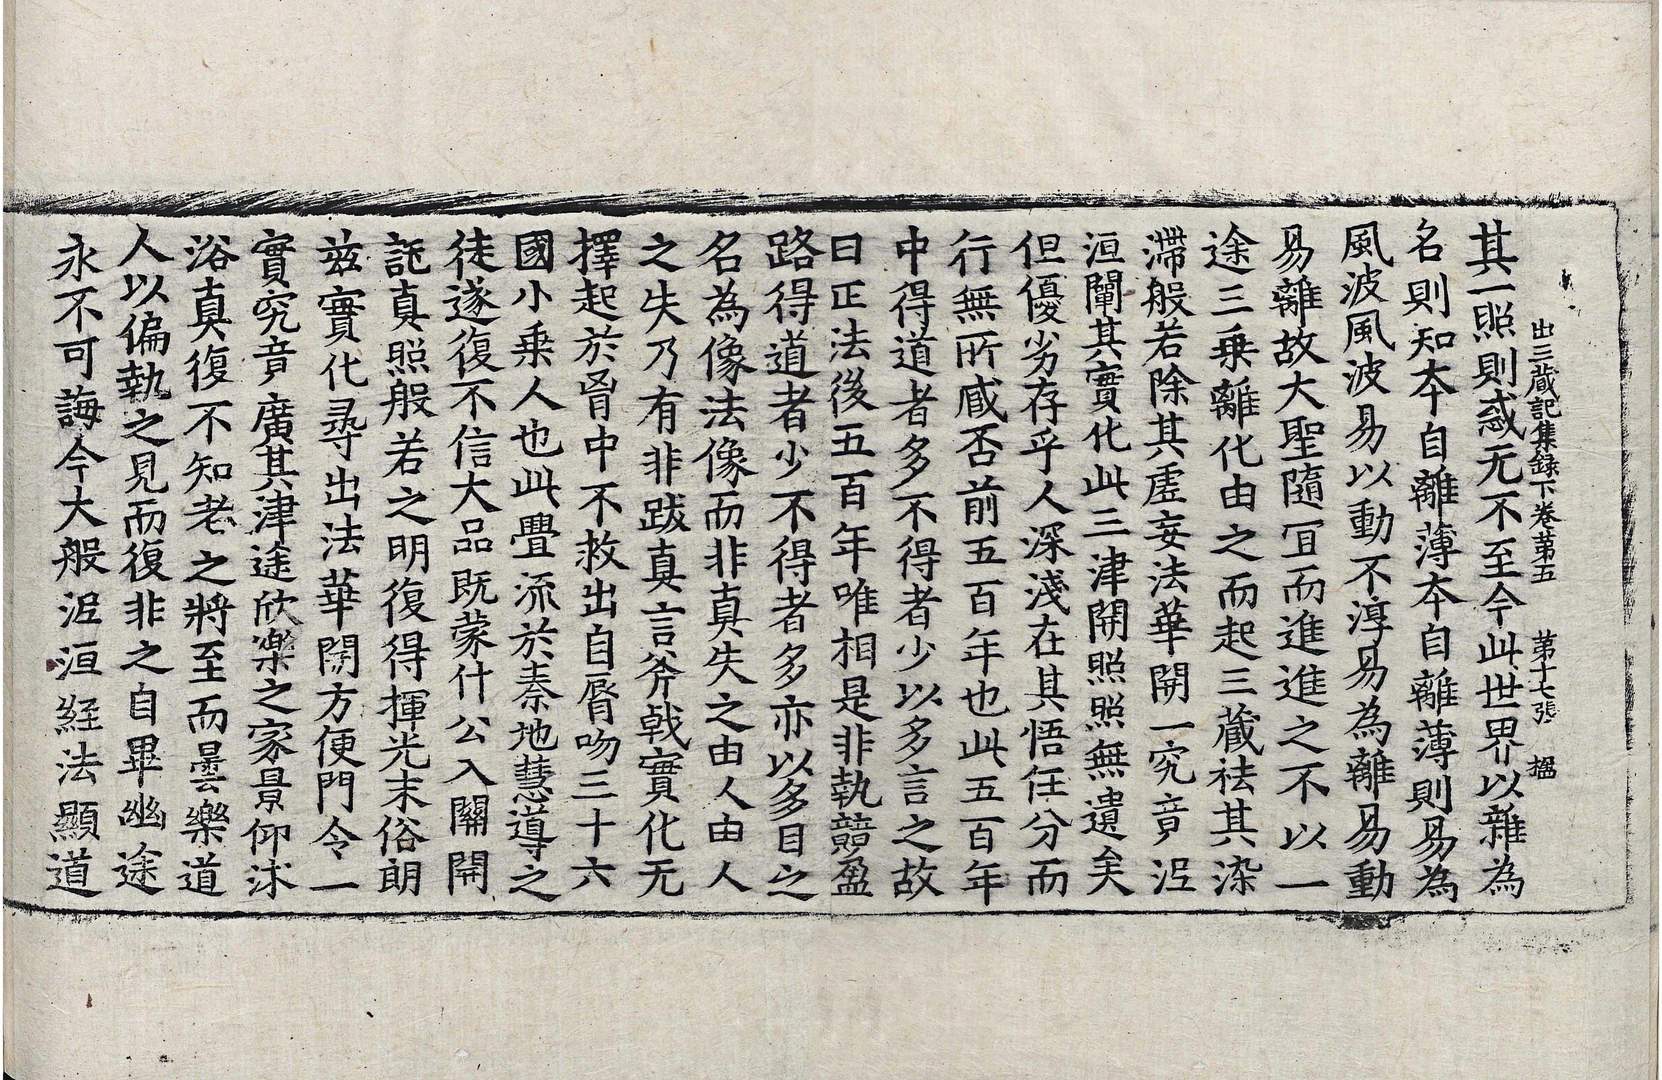 出三藏記集錄下卷苐五　苐十七張　楹
其一照則惑无不至今此世界以雜為
名則知本自離薄本自離薄則易為
風波風波易以動不淳易為離易動
易離故大聖隨冝而進進之不以一
途三乗離化由之而起三蔵祛其染
滯般若除其虛妄法華開一究竟泥
洹闡其實化此三津開照照無遺矣
但優劣存乎人深淺在其悟任分而
行無所臧否前五百年也此五百年
中得道者多不得者少以多言之故
曰正法後五百年唯相是非執競盈
路得道者少不得者多亦以多目之
名為像法像而非真失之由人由人
之失乃有非跋真言斧戟實化无
擇起於胷中不救出自脣吻三十六
國小乗人也此舋流於秦地慧導之
徒遂復不信大品既蒙什公入關開
託真照般若之明復得揮光末俗朗
茲實化尋出法華開方便門令一
實究竟廣其津途欣樂之家景仰沐
浴真復不知老之將至而曇樂道
人以偏執之見而復非之自畢幽途
永不可誨今大般泥洹經法顯道